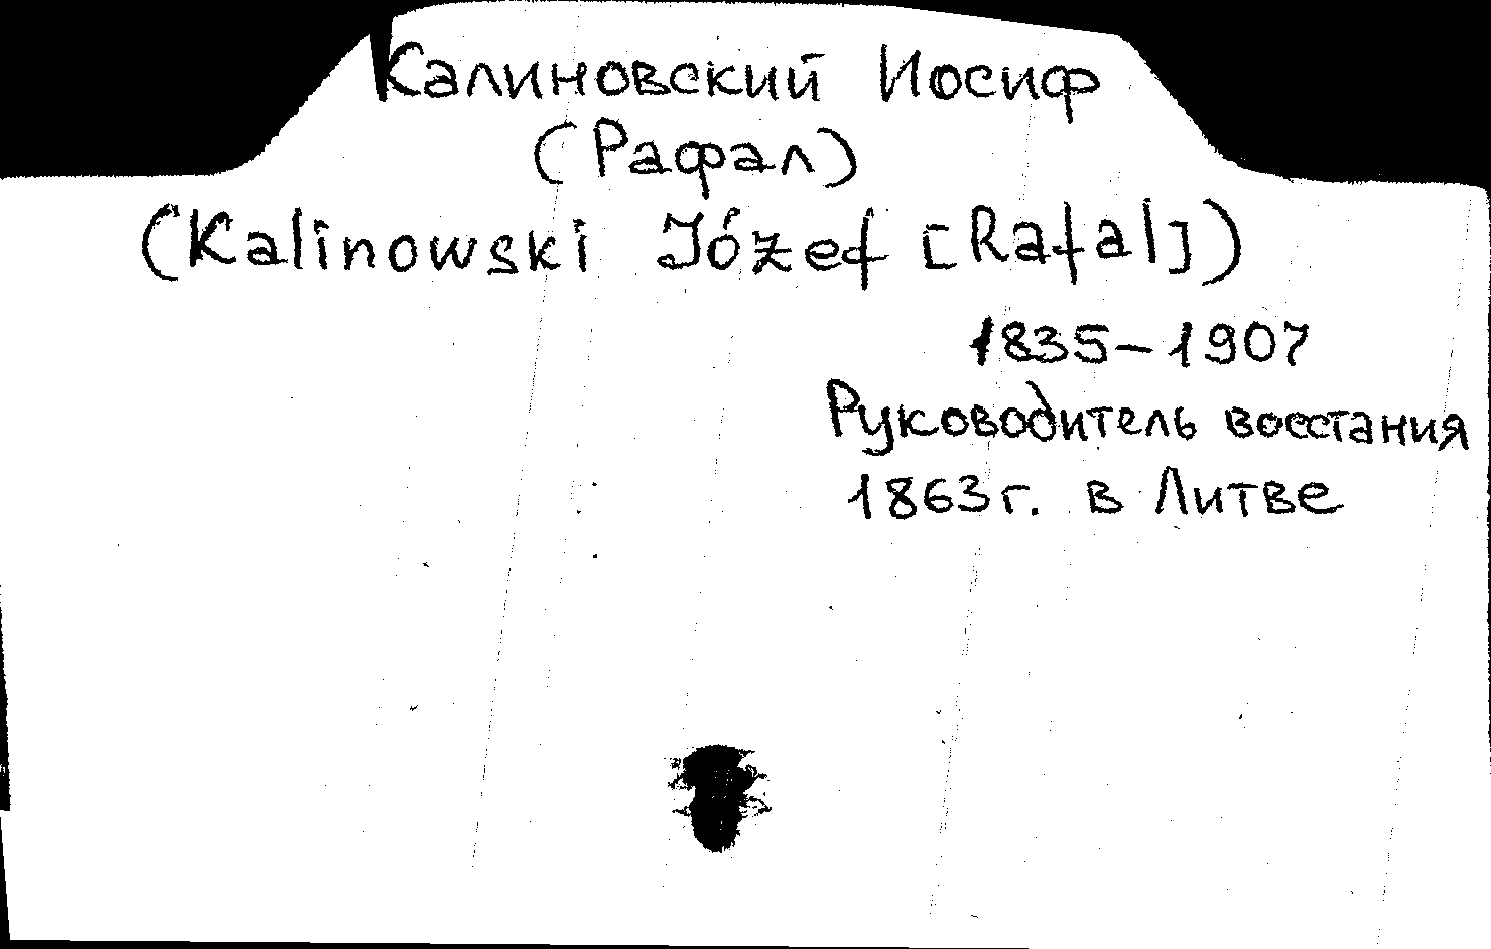 Калиновский Иосиф
(Рафал)
(Kalinowski Józef [Rafal])
1835–1907
Руководитель восстания
1863г. в Литве